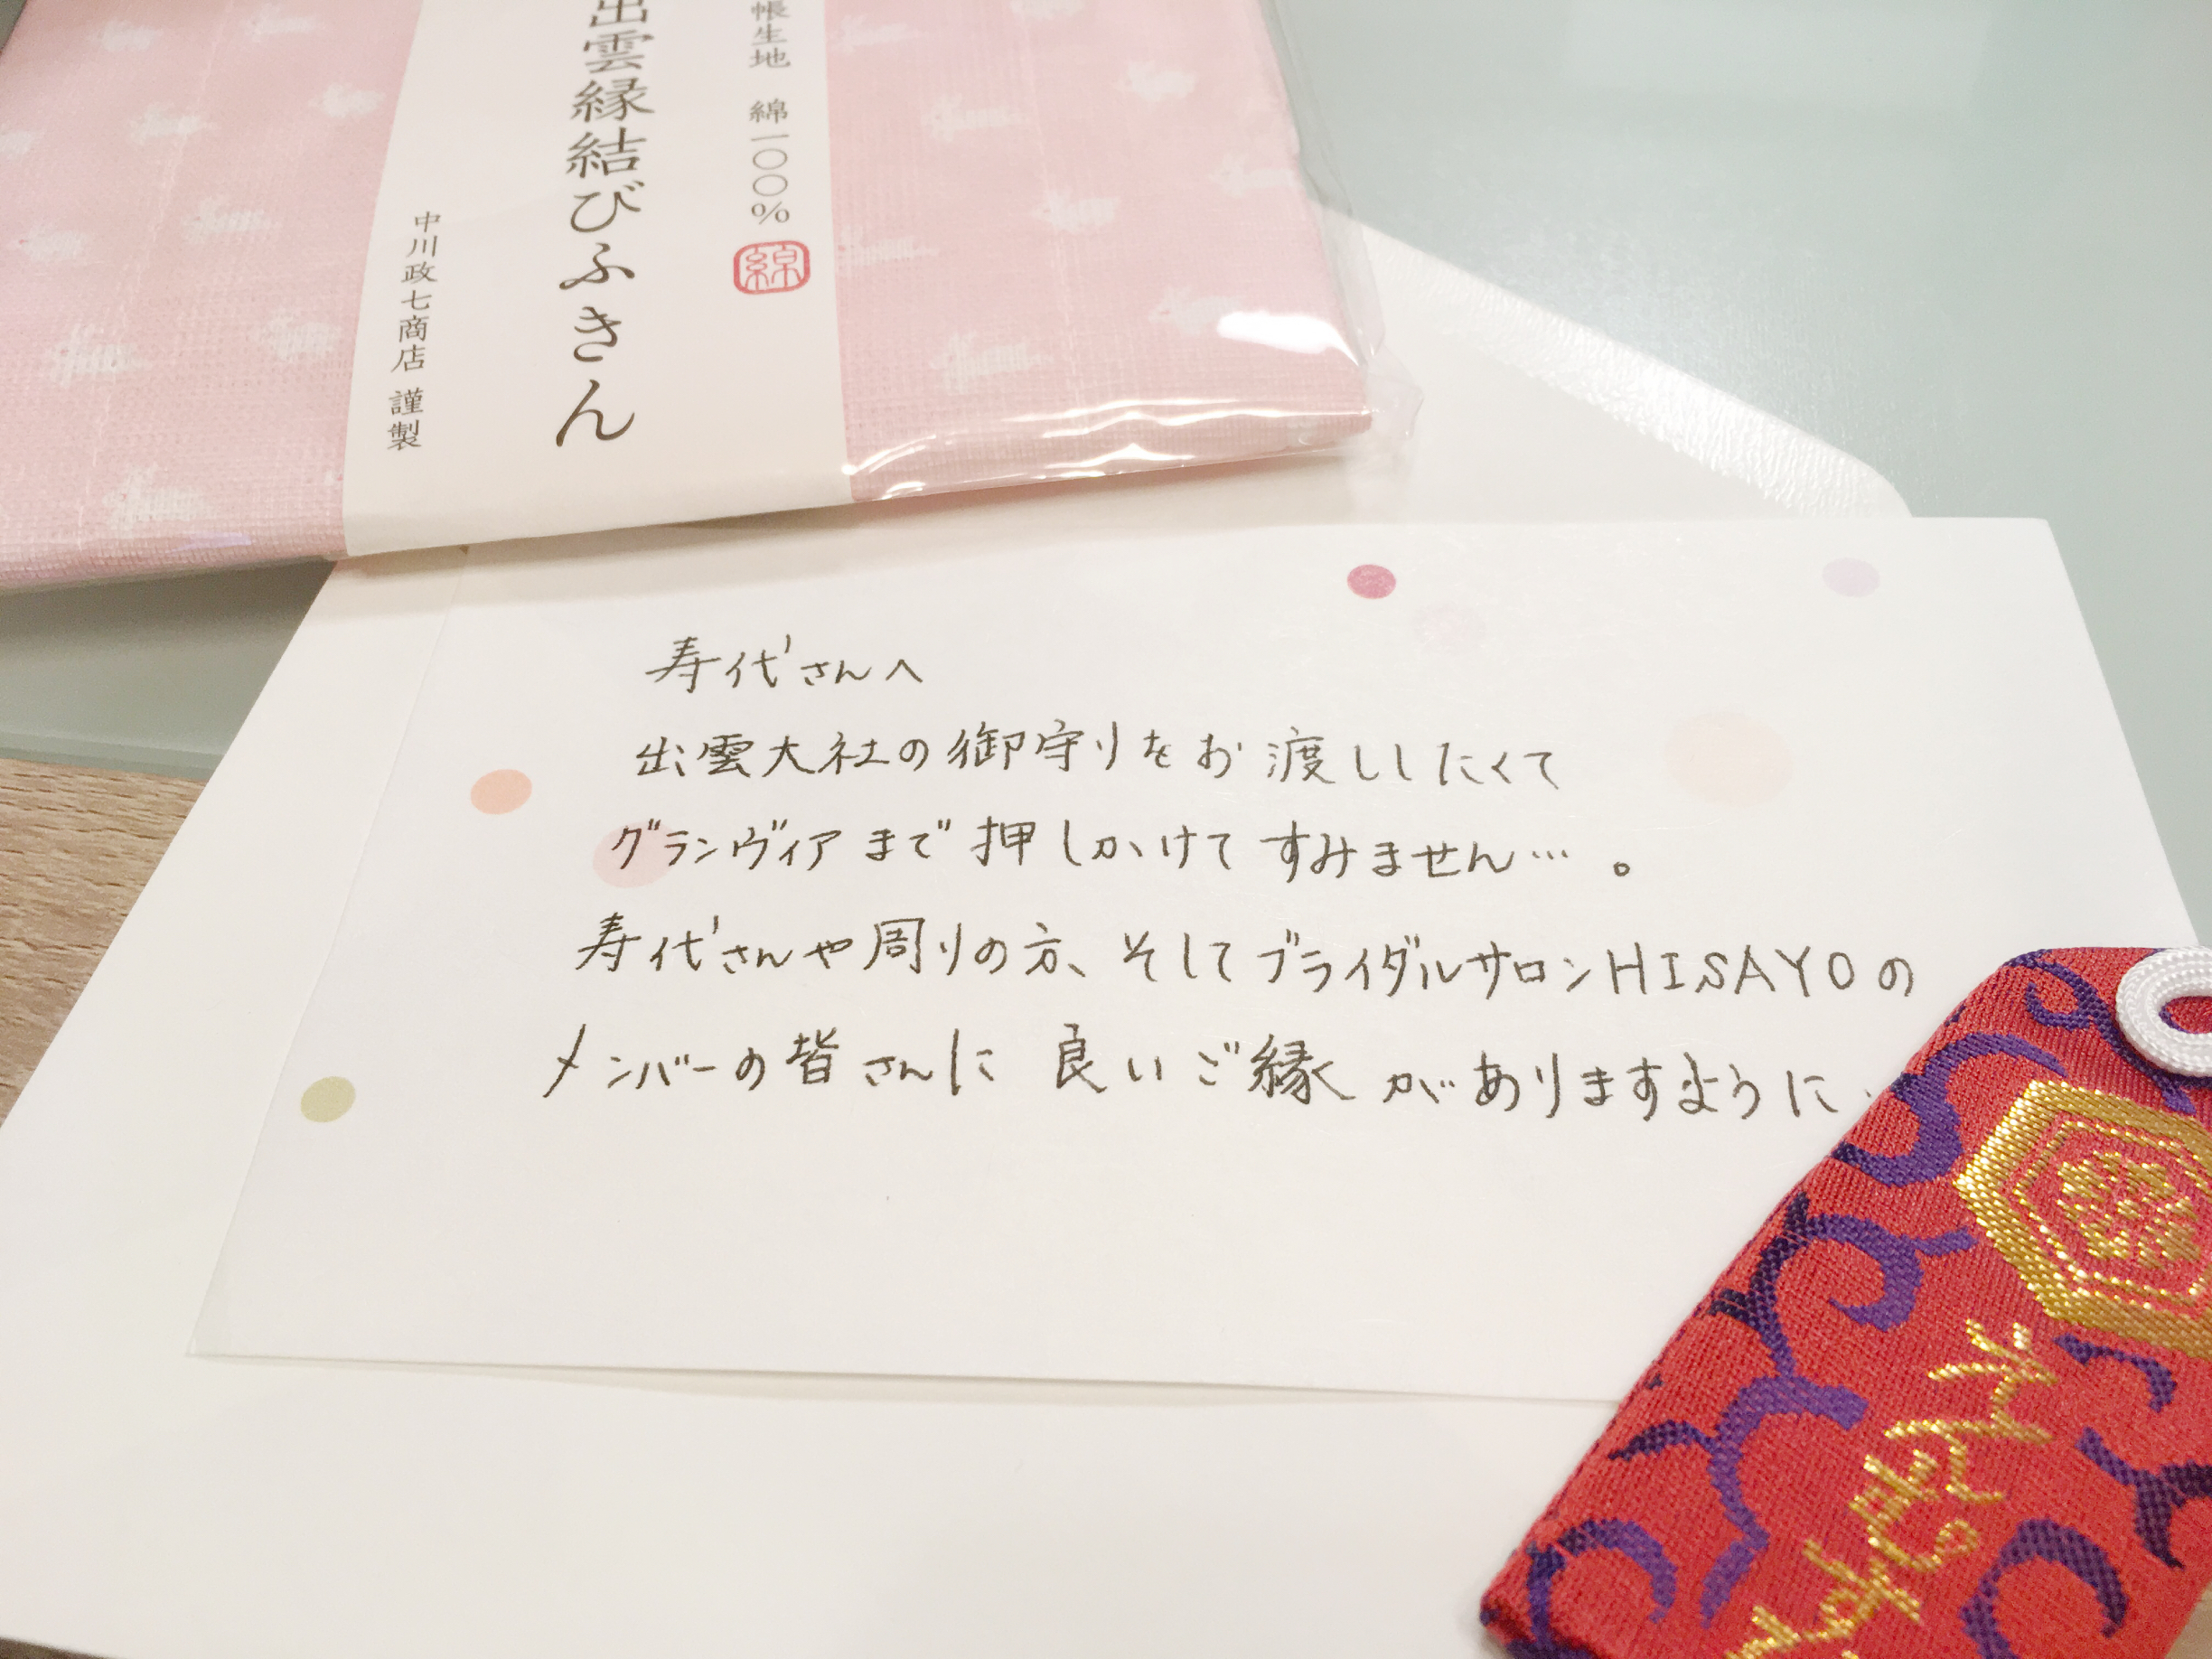 帳生地 綿一〇〇%
綿
出雲縁結びふきん
中川政七商店 謹製
寿代さんへ
出雲大社の御守りをお渡ししたくて
グランヴィアまで押しかけてすみません…。
寿代さんや周りの方、そしてブライダルサロンHISAYOの
メンバーの皆さんに良いご縁がありますように
えんむすび